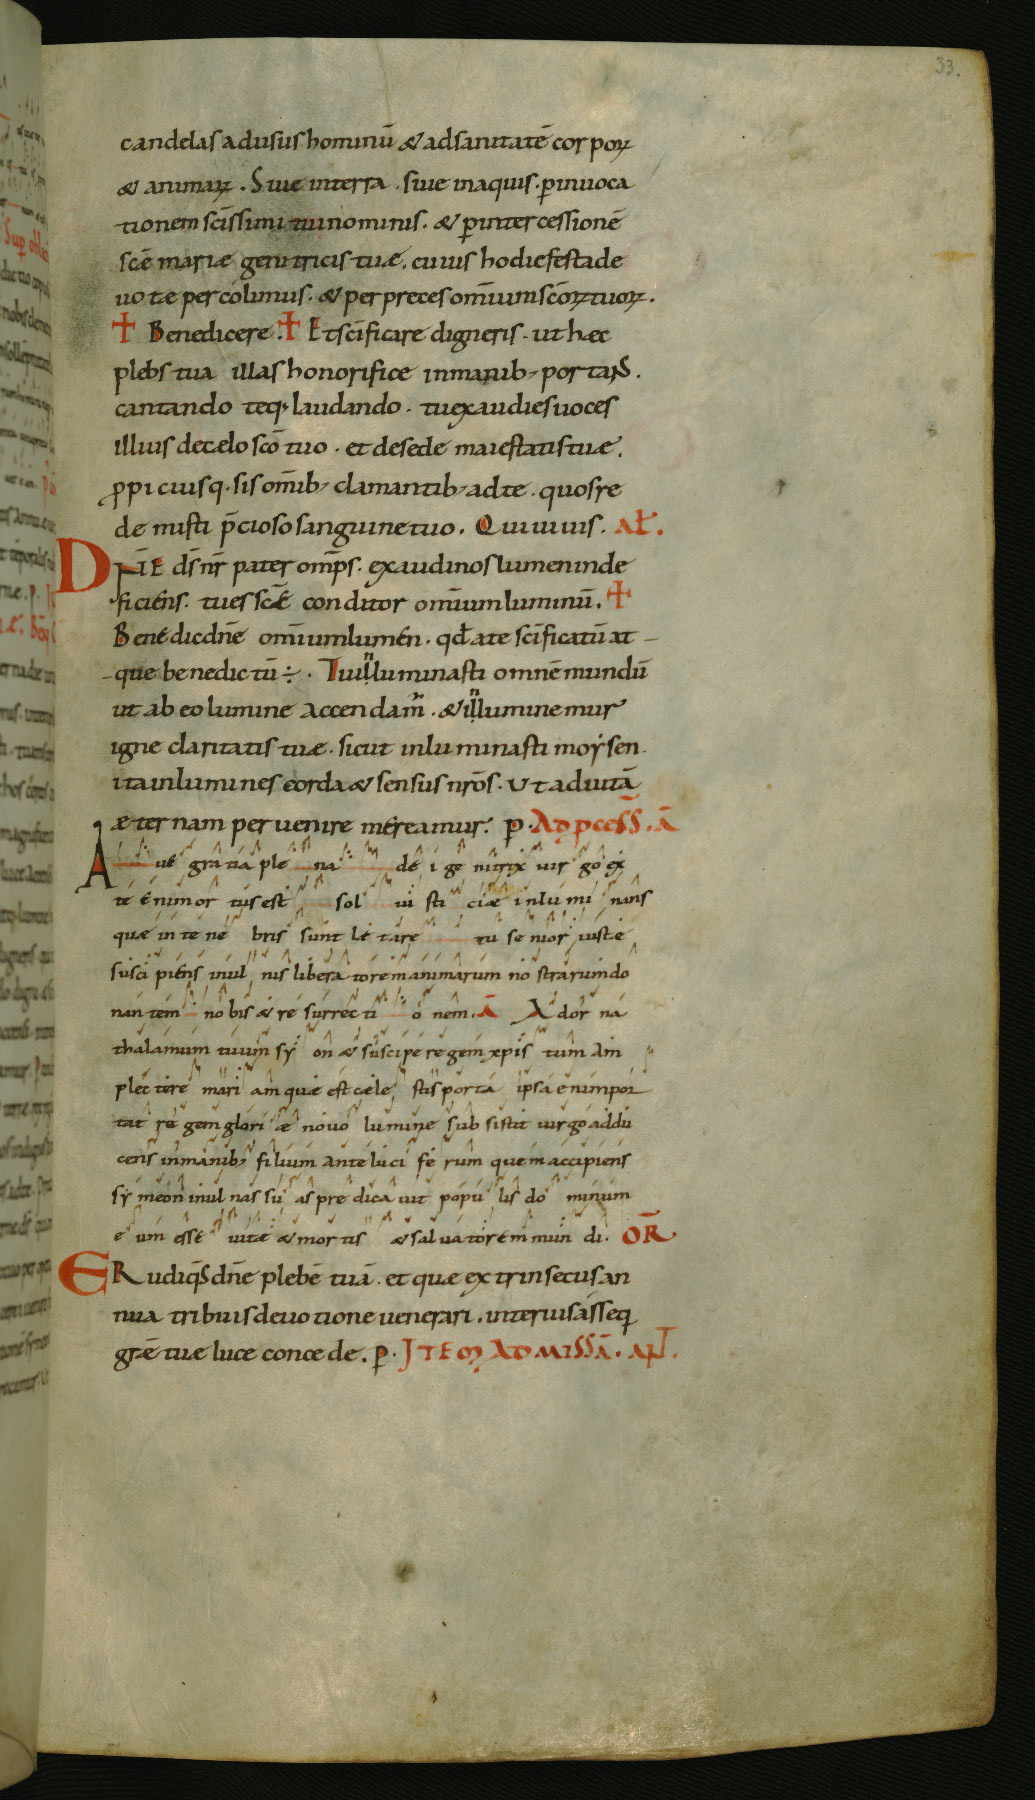 33.
candelas ad usus hominū & ad sanitatē corporꝝ
& animarꝝ. Siue interra. siue inaquis. ꝑ inuoca
tionem scīssimi tui nominis. & ꝑ intercessionē
scē mariæ genitricis tuæ. cuius hodie festa de
uotæ percolimus. & per preces omīum scōꝝ tuoꝝ.
✝ Benedicere. ✝ Et scīficare digneris. ut hæc
plebs tua illas honorifice in manib; portans.
cantando teq; laudando. tu exaudies uoces
illius de cælo scō tuo. et de sede maiestatis tuæ.
ꝓpicius q. sis omīb; clamantib; ad te. quos re
demisti p̄cioso sanguine tuo. Qui uiuis. ał.
DNE ds̄ nr̄ pater omp̄s. exaudi nos lumen inde
ficiens. tu es scē conditor omīum luminū. ✝
Benedic dn̄e omīum lumen. qđ a te scīficatū at
que benedictū ÷. Tu illuminasti omnē mundū
ut ab eo lumine accendam̄. & illuminemur
igne claritatis tuæ. sicut inluminasti moẏsen.
ita inlumines corda & sensus nrōs. Ut ad uitā
æternam peruenire mereamur. p. AD PCESS. A
Aue gratia plena dei genitrix uirgo ex
te enim ortus est sol iusticiæ inluminans
quæ in tenebris sunt letare tu senior iuste
suscipiens in ulnis liberatorem animarum nostrarum do
nantem nobis & resurrectionem. A Adorna
thalamum tuum sẏon & suscipe regem xpīs tum am
plectere mariam quæ est cælestis porta ipsa enim por
tat regem gloriæ nouo lumine subsistit uirgo addu
cens in manib; filium ante luciferum quem accipiens
sẏmeon in ulnas suas predicauit populis dominum
eum esse uitæ & mortis & saluatorem mundi. OR
ERudi qs̄ dn̄e plebē tuā. et quæ extrinsecus an
nua tribuis deuotione uenerari. interius assequi
græ tuæ luce concede. p. ITEM AD MISSA. aꝑł.